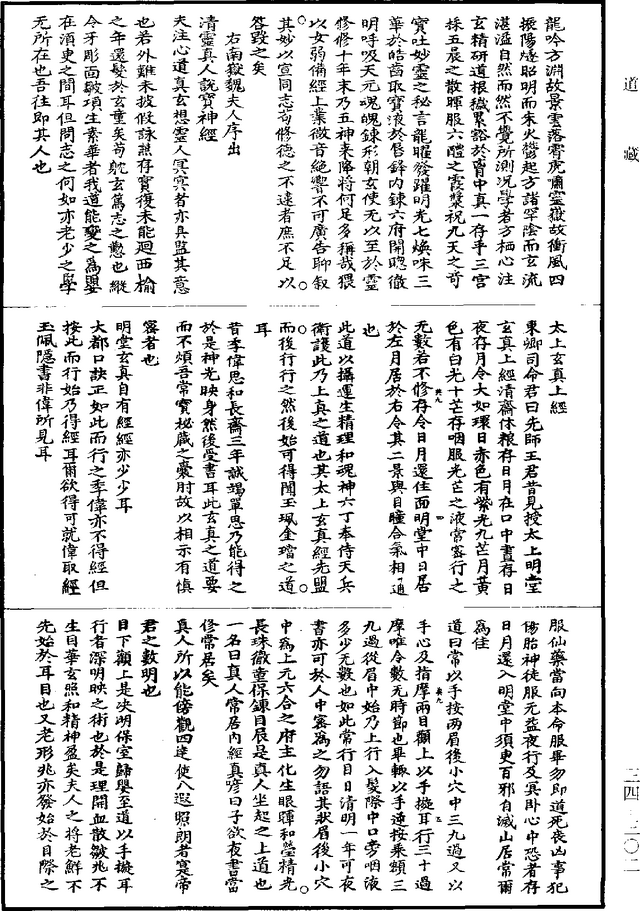 道藏
龍吟方淵故景雲落霄虎嘯靈嶽故衝風四
振陽燧招明而朱火鬱起方諸罕陰而玄流
湛溢自然而然不覺所測況學者方栖心注
玄精研道根穢累豁於胷中真一存乎三宮
採五晨之散暉服六醴之霞漿祝九天之奇
寶吐妙靈之秘言龍曜發躍明光七煥味三
華於皓齒取寶液於脣鋒內鍊六府開聰徹
明呼吸天元魂魄鍊形朝玄使无以至於靈
修修十年末乃五神來降將何足多稱哉猥
以女弱備經上業微音絕響不可廣告聊叙
其妙以宣同志苟修德之不達者庶不足以
咎毀之矣
右南嶽魏夫人序出
清靈真人說寶神經
夫注心道真玄想靈人冥冥者亦具監其意
也若外難未披假詠兼存實復未能迴西榆
之年還髮於玄童矣苟躭玄篤志之懃也縱
令牙彫面皺項生素華者我道能變之為嬰
在湏㬰之間耳但問志之何如亦老少之學
无所在也吾往即其人也
太上玄真上經
東卿司命君曰先師王君昔見授太上明堂
玄真上經清齋休粮存日月在口中晝存日
夜存月令大如環日赤色有紫光九芒月黃
色有白光十芒存咽服光芒之液常密行之
无數若不修存令日月還住面明堂中日居
於左月居於右令其二景與目瞳合氣相通
也
此道以攝運生精理和魂神六丁奉侍天兵
衛護此乃上真之道也其太上玄真經先盟
而後行行之然後始可得聞玉珮金璫之道
耳
昔李偉思和長齋三年誠竭單思乃能得之
於是神光映身然後受書耳此玄真之道要
而不煩吾常寶秘藏之囊肘故以相示有慎
密者也
明堂玄真自有經經亦少少耳
大都口訣正如此而行之季偉亦不得經但
按此而行始乃得經耳爾欲得可就偉取經
玉佩隱書非偉所見耳
服仙藥當向本命服畢勿即道死喪凶事犯
傷胎神徒服无益夜行及冥卧心中恐者存
日月還入明堂中須㬰百邪自滅山居常爾
為佳
道曰常以手按兩眉後小穴中三九過又以
手心及指摩兩目顴上以手旋耳行三十過
摩唯令數无時節也畢輒以手逆按乘額三
九過從眉中始乃上行入髮際中口傍咽液
多少无數也如此常行目自清明一年可夜
書亦可於人中密為之勿語其狀眉後小穴
中為上元六合之府主化生眼暉和瑩精光
長珠徹童保鍊目晨是真人坐起之上道也
一名曰真人常居內經真諺曰子欲夜書當
修常居矣
真人所以能傍觀四達使八遐照朗者寔帝
君之數明也
目下顴上是決明保室歸嬰至道以手旋耳
行者深明映之術也於是理開血散皺兆不
生目華玄照和精神盈矣夫人之將老鮮不
先始於耳目也又老形兆亦發始於目際之
三四－三〇二